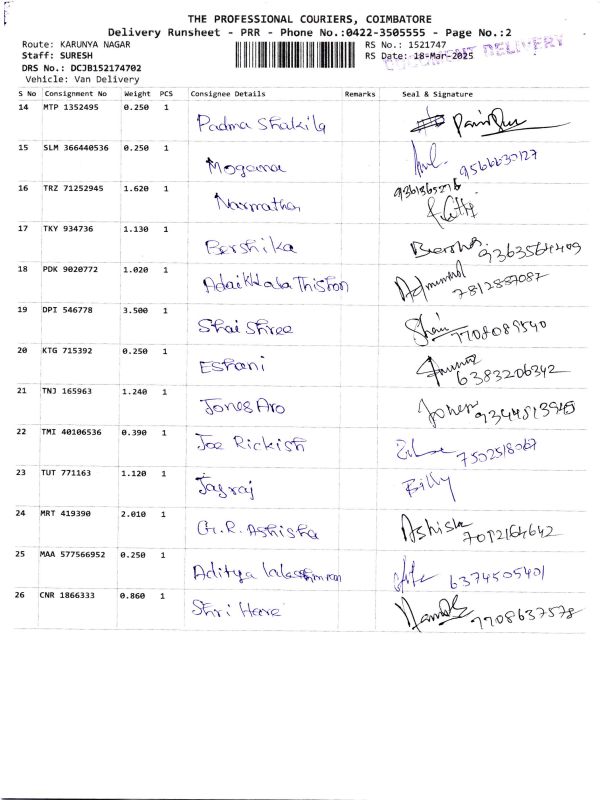 THE PROFESSIONAL COURIERS, COIMBATORE
Delivery Runsheet - PRR - Phone No.:0422-3505555 - Page No.:2
Route: KARUNYA NAGAR
RS No.: 1521747
Staff: SURESH
RS Date: 18-Mar-2025
DELIVERY
DRS No.: DCJB152174702
Vehicle: Van Delivery
S No Consignment No Weight PCS Consignee Details Remarks Seal & Signature
14 MTP 1352495 0.250 1
Padma Shakila
15 SLM 366440536 0.250 1
Mogana 9566630127
16 TRZ 71252945 1.620 1
Narmatha
17 TKY 934736 1.130 1
Bershika 9363564409
18 PDK 9020772 1.020 1
Adaikkala Thiston 7812887087
19 DPI 546778 3.500 1
Shai Shree Shai 7708089540
20 KTG 715392 0.250 1
Eshani 6383206342
21 TNJ 165963 1.240 1
Jones Aro Jones 9344813945
22 TMI 40106536 0.390 1
Joe Rickish 7502518067
23 TUT 771163 1.120 1
Jayraj Billy
24 MRT 419390 2.010 1
G.R. Ashisha Ashisha 7012164642
25 MAA 577566952 0.250 1
Aditya 6374505401
26 CNR 1866333 0.860 1
Shri Hare 7708637578